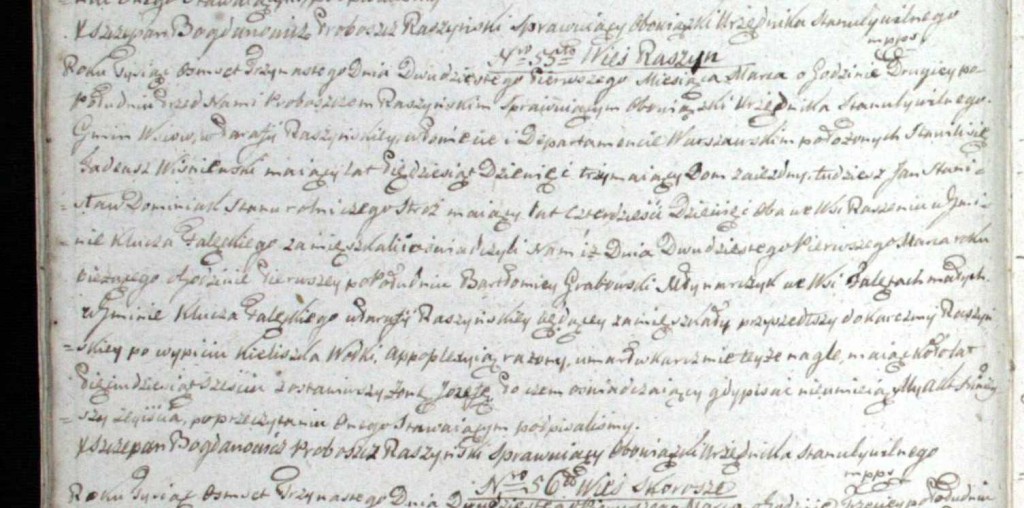 X Szczepan Bogdanowicz Proboszcz Raszyński Sprawuiący Obowiązki Urzędnika Stanu Cywilnego
mpps
Nro 55to Wieś Raszyn
Roku Tysiąc Osmset Trzynastego Dnia Dwudziestego Pierwszego Miesiąca Marca o Godzinie Drugiey po=
południu Przed Nami Proboszczem Raszyńskim Sprawuiącym Obowiązki Urzędnika Stanu Cywilnego.
Gmin w Parafij Raszyńskiey, w Powiecie i Departamencie Warszawskim położonych Stawili się
Tadeusz Wiśniewski maiący lat Pięćdziesiąt Dziewięć trzymaiący Dom zaiezdny, tudzież Jan Stani=
=sław Dominiak Stanu rolniczego Stróż maiący lat Czterdzieści Dziewięć Oba we Wsi Raszeniu w Gmi=
=nie Klucza Falęckiego zamieszkali i oświadczyli Nam iż Dnia Dwudziestego Pierwszego Marca roku
bieżącego o Godzinie Pierwszey po Południu Bartłomiey Grabowski Młynarczyk we Wsi Falętach małych
w Gminie Klucza Falęckiego w Parafij Raszyńskiey będącey zamieszkały, przyszedłszy do karczmy Raszyń=
=skiey po wypiciu kieliszka Wódki, Appoplexyią rażony, umarł w karczmie teyże nagle, maiąc około lat
Pięćdziesiąt Sześciu zostawiwszy żonę Jozefę. Po czem oświadczaiący gdy pisać nieumieią, My Akt Niniey=
=szy Zeyścia, po przeczytaniu Onego Stawaiącym podpisaliśmy.
X Szczepan Bogdanowicz Proboszcz Raszyński Sprawuiący Obowiązki Urzędnika Stanu Cywilnego
mpps
Nro 56to Wieś Skorosze
Roku Tysiąc Osmset Trzynastego Dnia Marca o Godzinie Trzeciey po Południu